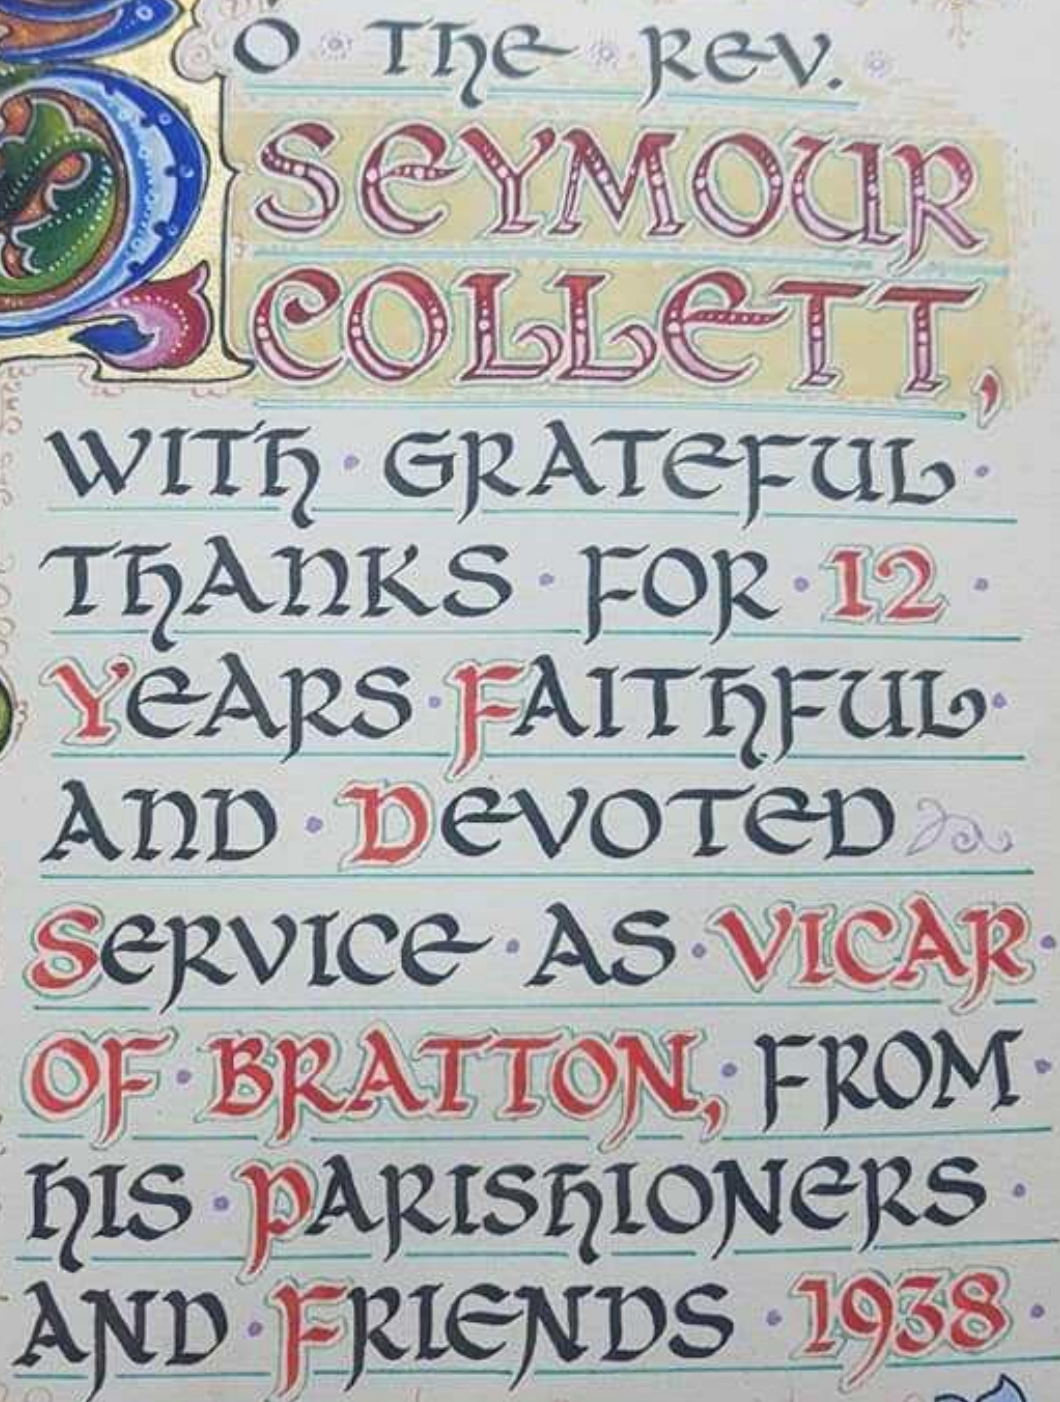 TO THE REV.
SEYMOUR
COLLETT,
WITH · GRATEFUL ·
THANKS · FOR · 12 ·
YEARS · FAITHFUL ·
AND · DEVOTED
SERVICE · AS · VICAR ·
OF · BRATTON, · FROM ·
HIS · PARISHIONERS ·
AND · FRIENDS · 1938 ·